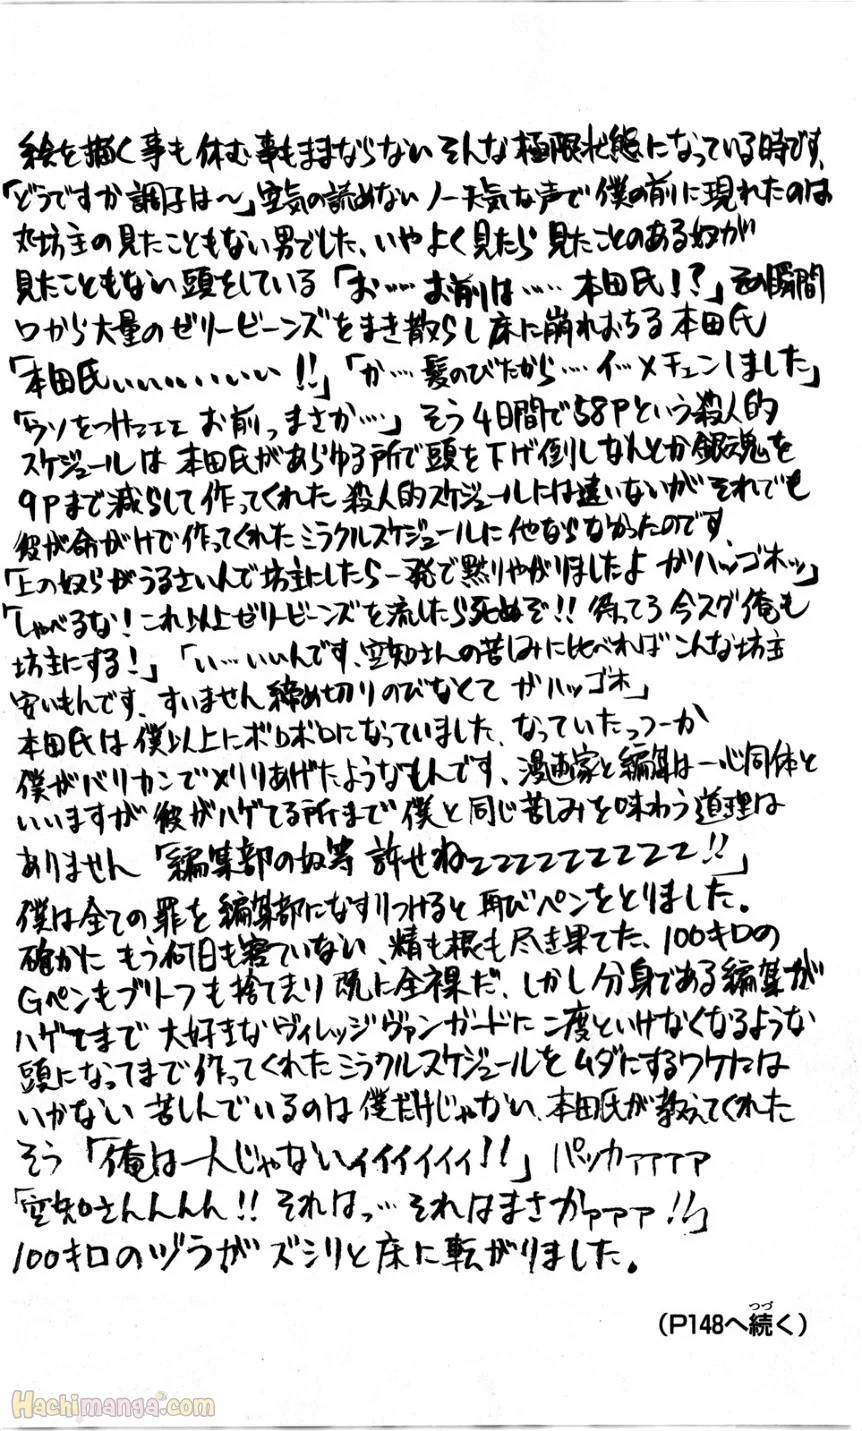 絵を描く事も休む事もままならない そんな極限状態になっている時です、
「どうですか調子は〜」空気の読めないノー天気な声で僕の前に現れたのは
丸坊主の見たこともない男でした、いやよく見たら見たことのある奴が
見たこともない頭をしている「お‥‥お前は‥‥本田氏!?」その瞬間
口から大量のゼリービーンズをまき散らし床に崩れおちる本田氏
「本田氏ぃぃぃぃぃぃぃ!!」「か‥‥髪のびたから‥‥イ‥メチェンしました」
「ウソをつけェェェ お前っまさか‥‥」そう4日間で58Pという殺人的
スケジュールは本田氏があらゆる所で頭を下げ倒しなんとか銀魂を
9Pまで減らして作ってくれた殺人的スケジュールには違いないがそれでも
彼が命がけで作ってくれたミラクルスケジュールに他ならなかったのです、
「上の奴らがうるさいんで坊主にしたら一発で黙りやがりましたよ ガハッゴホッ」
「しゃべるな!これ以上ゼリービーンズを流したら死ぬぞ!!待ってろ今スグ俺も
坊主にする!」「い‥いいんです、空知さんの苦しみに比べればこんな坊主
安いもんです、すいません締め切りのびなくて ガハッゴホ」
本田氏は僕以上にボロボロになっていました、なっていたっつーか
僕がバリカンで刈りあげたようなもんです、漫画家と編集は一心同体と
いいますが彼がハゲてる所まで僕と同じ苦しみを味わう道理は
ありません「編集部の奴等許せねェェェェェェェェェ!!」
僕は全ての罪を編集部になすりつけると再びペンをとりました。
確かにもう何日も寝ていない、精も根も尽き果てた、100キロの
Gペンもブリーフも捨て去り既に全裸だ、しかし分身である編集が
ハゲてまで大好きなヴィレッジヴァンガードに二度といけなくなるような
頭になってまで作ってくれたミラクルスケジュールをムダにするワケには
いかない苦しんでいるのは僕だけじゃない、本田氏が教えてくれた
そう「俺は一人じゃないィィィィィィ!!」パッカァァァァ
「空知さんんんん!!それはっ‥それはまさかァァァ!!」
100キロのヅラがズシリと床に転がりました。
(P148へ続く)
つづ
Hachimanga.com